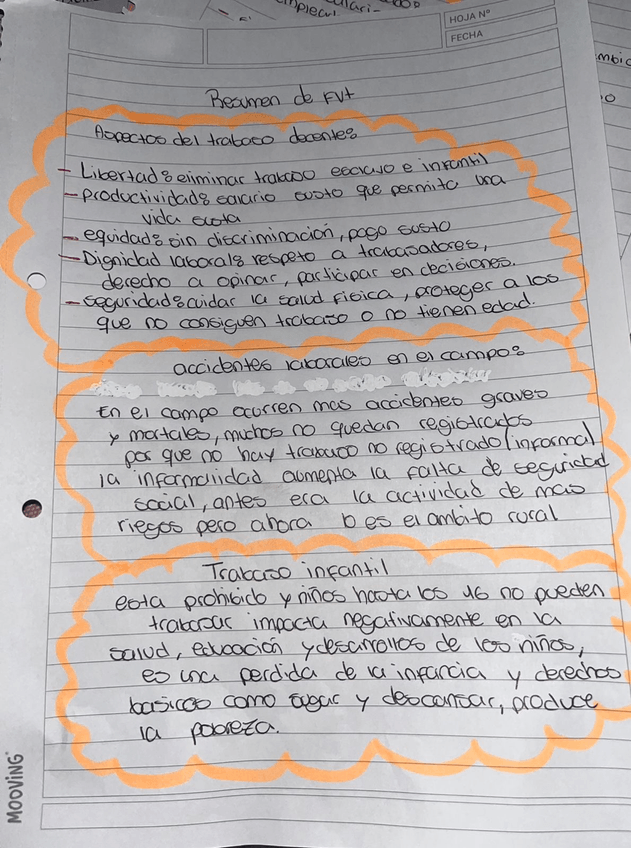 HOJA Nº
FECHA
Resumen de FVT
Aspectos del trabajo decente:
- Libertad: eliminar trabajo esclavo e infantil
- productividad: salario justo que permita una
vida justa
- equidad: sin discriminación, pago justo
- Dignidad laboral: respeto a trabajadores,
derecho a opinar, participar en decisiones.
- seguridad: cuidar la salud física, proteger a los
que no consiguen trabajo o no tienen edad.
accidentes laborales en el campo:
En el campo ocurren mas accidentes graves
y mortales, muchos no quedan registrados
por que no hay trabajo no registrado/informal
la informalidad aumenta la falta de seguridad
social, antes era la actividad de mas
riegos pero ahora lo es el ambito rural
Trabajo infantil
esta prohibido y niños hasta los 16 no pueden
trabajar impacta negativamente en la
salud, educación y desarrollos de los niños,
es una perdida de la infancia y derechos
basicos como jugar y descansar, produce
la pobreza.
MOOVING